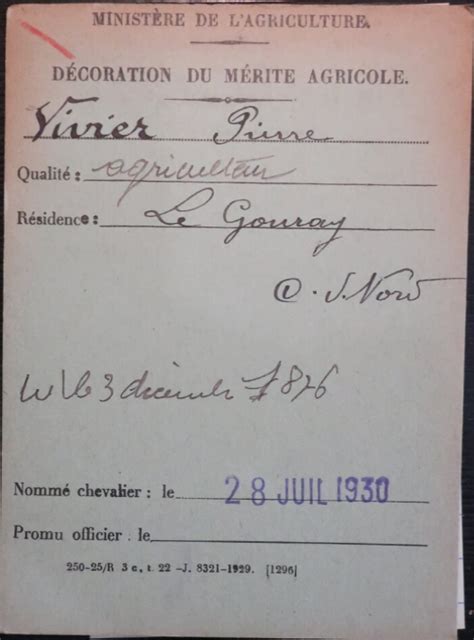 MINISTÈRE DE L'AGRICULTURE.
DÉCORATION DU MÉRITE AGRICOLE.
Vivier Pierre
Qualité : agriculteur
Résidence : Le Gouray
C. d. Nord
né le 3 décembre 1876
Nommé chevalier : le 28 JUIL 1930
Promu officier : le
250-25/R 3 c, t. 22 -J. 8321-1929. [1296]